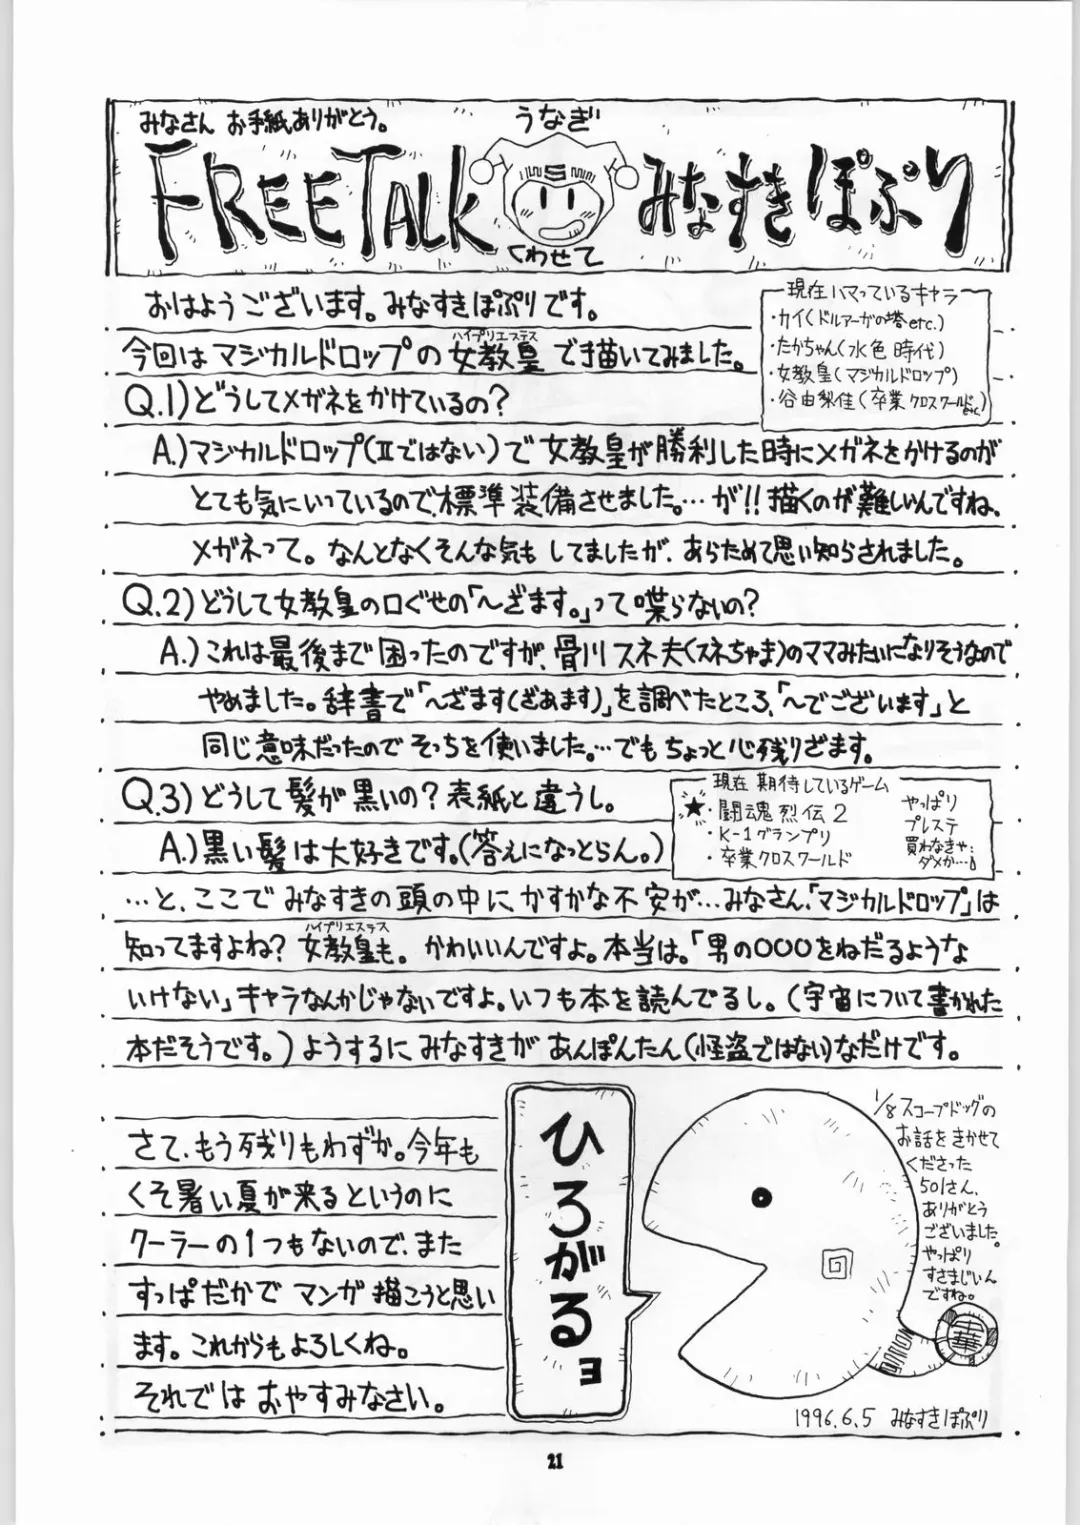 みなさん お手紙ありがとう。
うなぎ
FREE TALK みなすきぽぷり
くわせて
おはようございます。みなすきぽぷりです。
ハイプリエステス
今回はマジカルドロップの女教皇で描いてみました。
現在ハマっているキャラ
・カイ(ドルアーガの塔etc.)
・たかちゃん(水色時代)
・女教皇(マジカルドロップ)
・谷由梨佳(卒業クロスワールドetc.)
Q.1)どうしてメガネをかけているの?
A.)マジカルドロップ(Ⅱではない)で女教皇が勝利した時にメガネをかけるのが
とても気にいっているので、標準装備させました。…が!!描くのが難しいんですね、
メガネって。なんとなくそんな気もしてましたが、あらためて思い知らされました。
Q.2)どうして女教皇の口ぐせの「〜ざます。」って喋らないの?
A.)これは最後まで困ったのですが、骨川スネ夫(スネちゃま)のママみたいになりそうなので
やめました。辞書で「〜ざます(ざあます)」を調べたところ、「〜でございます」と
同じ意味だったのでそっちを使いました。…でもちょっと心残りざます。
Q.3)どうして髪が黒いの?表紙と違うし。
A.)黒い髪は大好きです。(答えになっとらん。)
現在期待しているゲーム
★・闘魂烈伝2
・K-1グランプリ
・卒業クロスワールド
やっぱり
プレステ
買わなきゃ
ダメか…。
…と、ここでみなすきの頭の中に、かすかな不安が…みなさん、「マジカルドロップ」は
ハイプリエステス
知ってますよね?女教皇も。かわいいんですよ。本当は。「男の○○○をねだるような
いけない」キャラなんかじゃないですよ。いつも本を読んでるし。(宇宙について書かれた
本だそうです。)ようするにみなすきがあんぽんたん(怪盗ではない)なだけです。
さて、もう残りもわずか。今年も
くそ暑い夏が来るというのに
クーラーの1つもないので、また
すっぱだかでマンガ描こうと思い
ます。これからもよろしくね。
それではおやすみなさい。
ひろがるヨ
1/8スコープドッグの
お話をきかせて
くださった
501さん、
ありがとう
ございました。
やっぱり
すさまじいん
ですね。
中華
1996.6.5 みなすきぽぷり
21